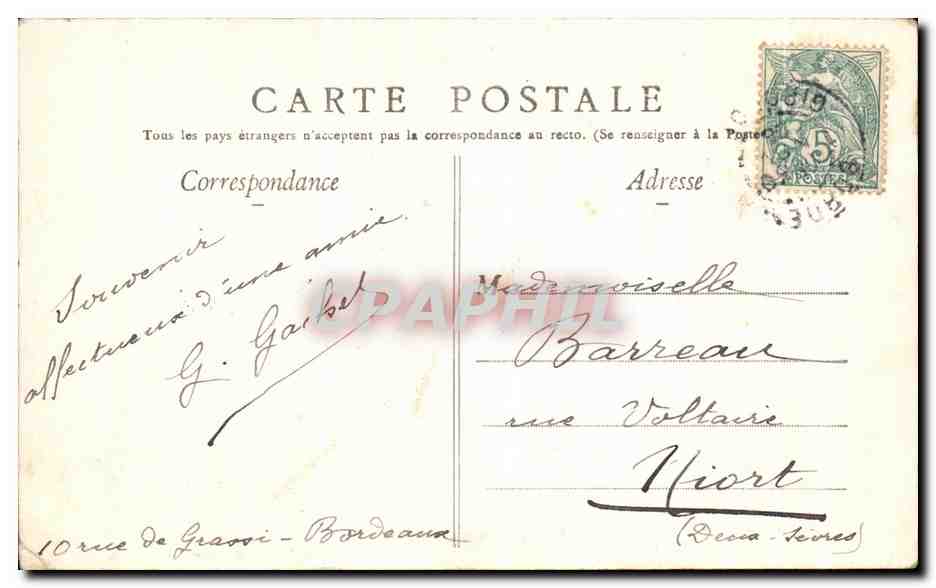 CARTE POSTALE
Tous les pays étrangers n'acceptent pas la correspondance au recto. (Se renseigner à la Poste
Correspondance
Adresse
5
POSTES
GIRONDE
Souvenir
affectueux d'une amie.
G.
Mademoiselle
Barreau
rue Voltaire
Niort
(Deux-Sèvres)
10 rue de Grassi - Bordeaux
CPAPHIL